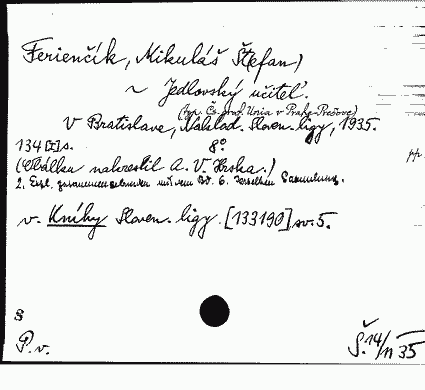 Ferienčík, Mikuláš Štefan)
~ Jedlovský učiteľ.
(typ. Č. graf. Unia v Prahe-Prešove)
V Bratislave, Náklad. Sloven. ligy, 1935.
134 [I] s. 8°
(Obálku nakreslil A. V. Hrska.)
2. Expl. zusammengebunden mit dem Bd. 6. derselben Sammlung.
v. Knihy Sloven. ligy. [133190] sv. 5.
8
P. v.
Š. 14/11 35
pp